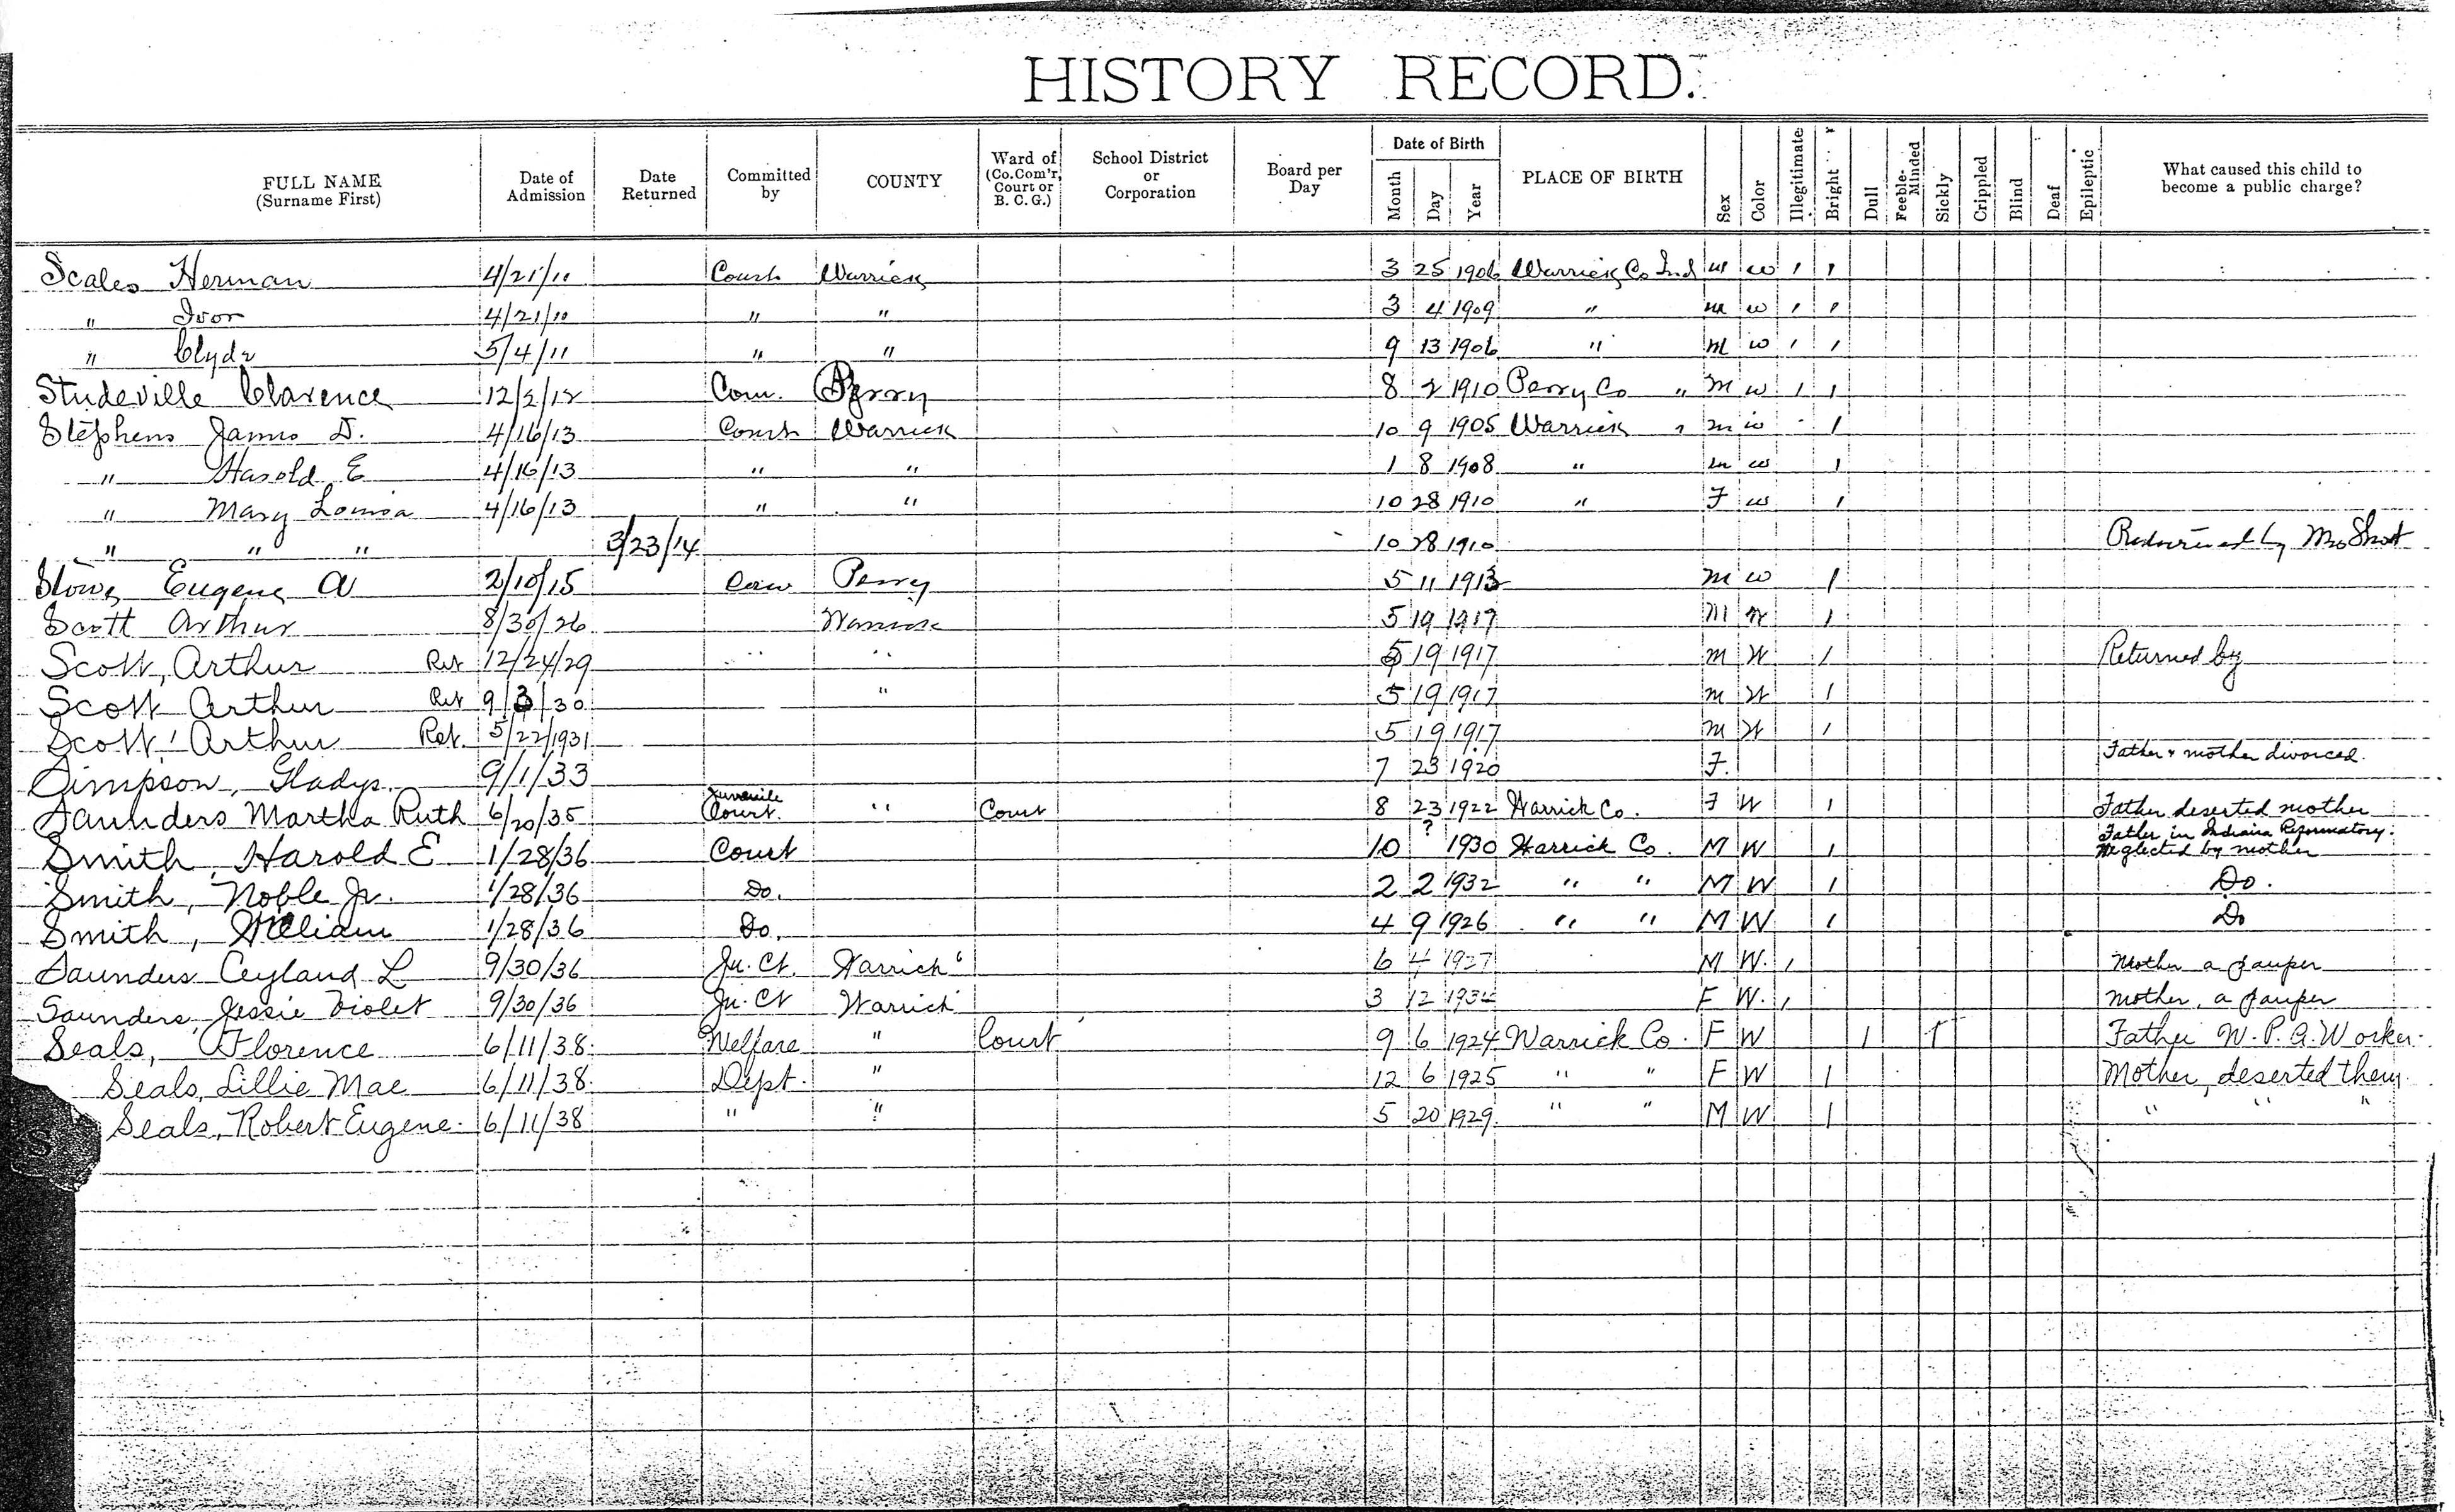 HISTORY RECORD.
FULL NAME (Surname First) Date of Admission Date Returned Committed by COUNTY Ward of (Co. Com'r, Court or B. C. G.) School District or Corporation Board per Day Date of Birth Month Day Year PLACE OF BIRTH Sex Color Illegitimate Bright Dull Feeble-Minded Sickly Crippled Blind Deaf Epileptic What caused this child to become a public charge?
Scales Herman 4/21/11 Court Warrick 3 25 1906 Warrick Co Ind M w 1 1
" Ivor 4/21/10 " " 3 4 1909 " m w 1 1
" Clyde 5/4/11 " " 9 13 1906 " M w 1 1
Studeville Clarence 12/2/12 Com. Perry 8 2 1910 Perry Co " M w 1 1
Stephens James D. 4/16/13 Court Warrick 10 9 1905 Warrick " m w 1
" Harold E 4/16/13 " " 1 8 1908 " m w 1
" Mary Louisa 4/16/13 " " 10 28 1910 " F w 1
" " " 3/23/14 10 28 1910 by Mrs
Eugene A 2/10/15 Com Perry 5 11 1913 M w 1
Scott Arthur 8/30/26 Warrick 5 19 1917 M W 1
Scott, Arthur Ret 12/24/29 " " 5 19 1917 M W 1 Returned by
Scott Arthur Ret 9/3/30 " 5 19 1917 M W 1
Scott, Arthur Ret. 5/22/1931 5 19 1917 M W 1
Simpson, Gladys. 9/1/33 7 23 1920 F. Father & mother divorced.
Saunders Martha Ruth 6/20/35 Juvenile Court. " Court 8 23 1922 Warrick Co. F W 1 Father deserted mother
Smith, Harold E 1/28/36 Court 10 ? 1930 Warrick Co. M W 1 Father in Indiana Reformatory. Neglected by mother
Smith, Noble Jr. 1/28/36 Do. 2 2 1932 " " M W 1 Do.
Smith, William 1/28/36 Do. 4 9 1926 " " M W 1 Do
Saunders Ceyland L 9/30/36 Ju. Ct. Warrick 6 4 1927 M W. 1 Mother a pauper
Saunders, Jessie Violet 9/30/36 Ju. Ct Warrick 3 12 1934 F W. 1 Mother, a pauper
Seals, Florence 6/11/38. Welfare " Court 9 6 1924 Warrick Co. F W 1 1 Father W. P. A. Worker.
Seals, Lillie Mae 6/11/38. Dept. " 12 6 1925 " " F W 1 Mother, deserted them.
Seals, Robert Eugene. 6/11/38 " " 5 20 1929 " " M W 1 " " "
S